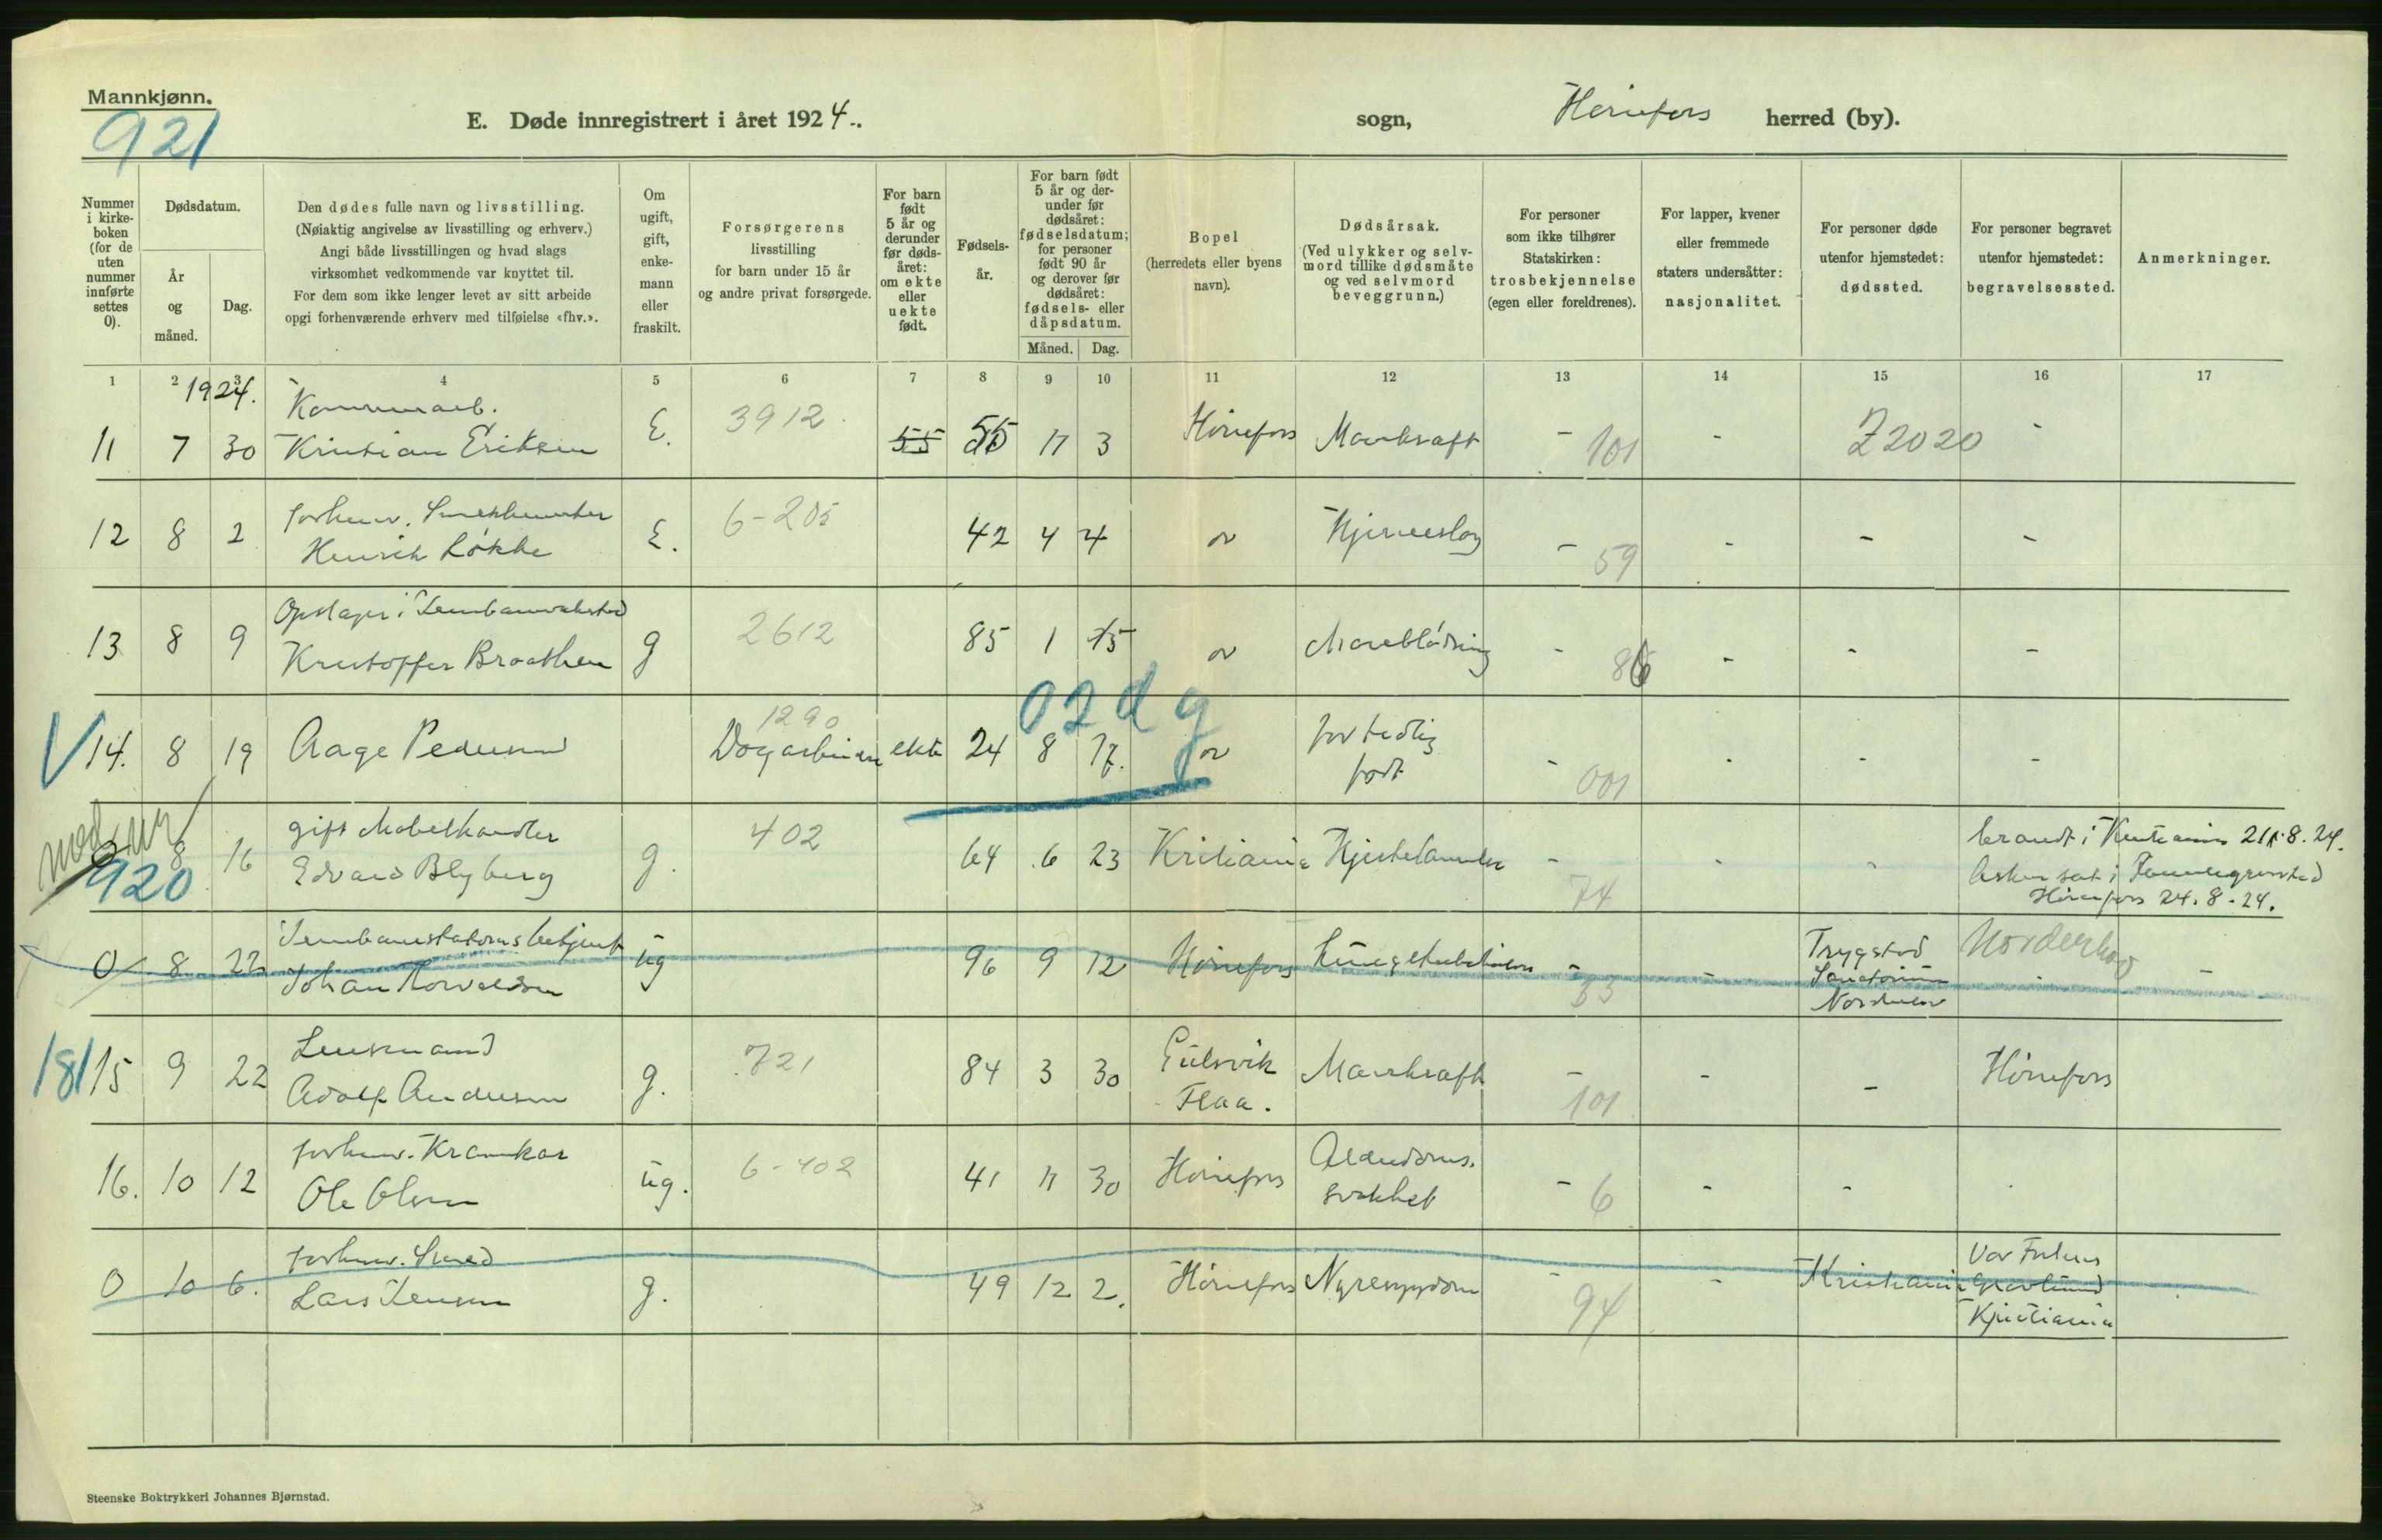 Mannkjønn.
921
E. Døde innregistrert i året 1924.
sogn,
Hønefoss herred (by).
Nummer i kirke- boken (for de uten nummer innførte settes 0).
Dødsdatum.
År og måned.
Dag.
Den dødes fulle navn og livsstilling.
(Nøiaktig angivelse av livsstilling og erhverv.)
Angi både livsstillingen og hvad slags
virksomhet vedkommende var knyttet til.
For dem som ikke lenger levet av sitt arbeide
opgi forhenværende erhverv med tilføielse «fhv.».
Om ugift, gift, enke- mann eller fraskilt.
Forsørgerens
livsstilling
for barn under 15 år
og andre privat forsørgede.
For barn født 5 år og derunder før døds- året: om ekte eller uekte født.
Fødsels- år.
For barn født 5 år og der- under før dødsåret: fødselsdatum; for personer født 90 år og derover før dødsåret: fødsels- eller dåpsdatum.
Måned. Dag.
Bopel
(herredets eller byens
navn).
Dødsårsak.
(Ved ulykker og selv-
mord tillike dødsmåte
og ved selvmord
beveggrunn.)
For personer
som ikke tilhører
Statskirken:
trosbekjennelse
(egen eller foreldrenes).
For lapper, kvener
eller fremmede
staters undersåtter:
nasjonalitet.
For personer døde
utenfor hjemstedet:
dødssted.
For personer begravet
utenfor hjemstedet:
begravelsessted.
Anmerkninger.
1 2 3 4 5 6 7 8 9 10 11 12 13 14 15 16 17
1924.
11 7 30 Kristian Eriksen E. 3912 55 55 11 3 Hønefoss Marvkraft - 101 - Z2020 -
forhenv.
12 8 2 Henrik Løkke E. 6-205 42 4 4 Hjerneslag - 59 - - -
13 8 9 Kristoffer Braathen g 2612 85 1 15 Maveblødning - 86 - - -
02dg
V 14. 8 19 Aage Pedersen 1290 ekte 24 8 17. for tidlig
født - 001 - - -
gift Møbelhandler
920 8 16 Edvard Blyberg g. 402 64 6 23 Kristiania - 74 - - brændt i Kristiania 21.8.24.
Hønefoss 24.8.24.
0 8 22 Johan Torvaldsen ug 96 9 12 Hønefoss Lungetuberkulose - 33 - Trygstad
Sanatorium
Norderhov - Norderhov
Lensmand
181 15 9 22 Adolf Andersen g. 721 84 3 30 Gulsvik
Flaa. Marvkraft - 101 - - Hønefoss
forhenv.
16. 10 12 Ole Olsen ug. 6-402 41 11 30 Hønefoss Alderdoms.
svakhet - 6 - -
forhenv. Smed
0 10 6. Lars Jensen g. 49 12 2. Hønefoss Nyresygdom - 94 - Kristiania Vor Frelsers
Gravlund
Kristiania
Steenske Boktrykkeri Johannes Bjørnstad.